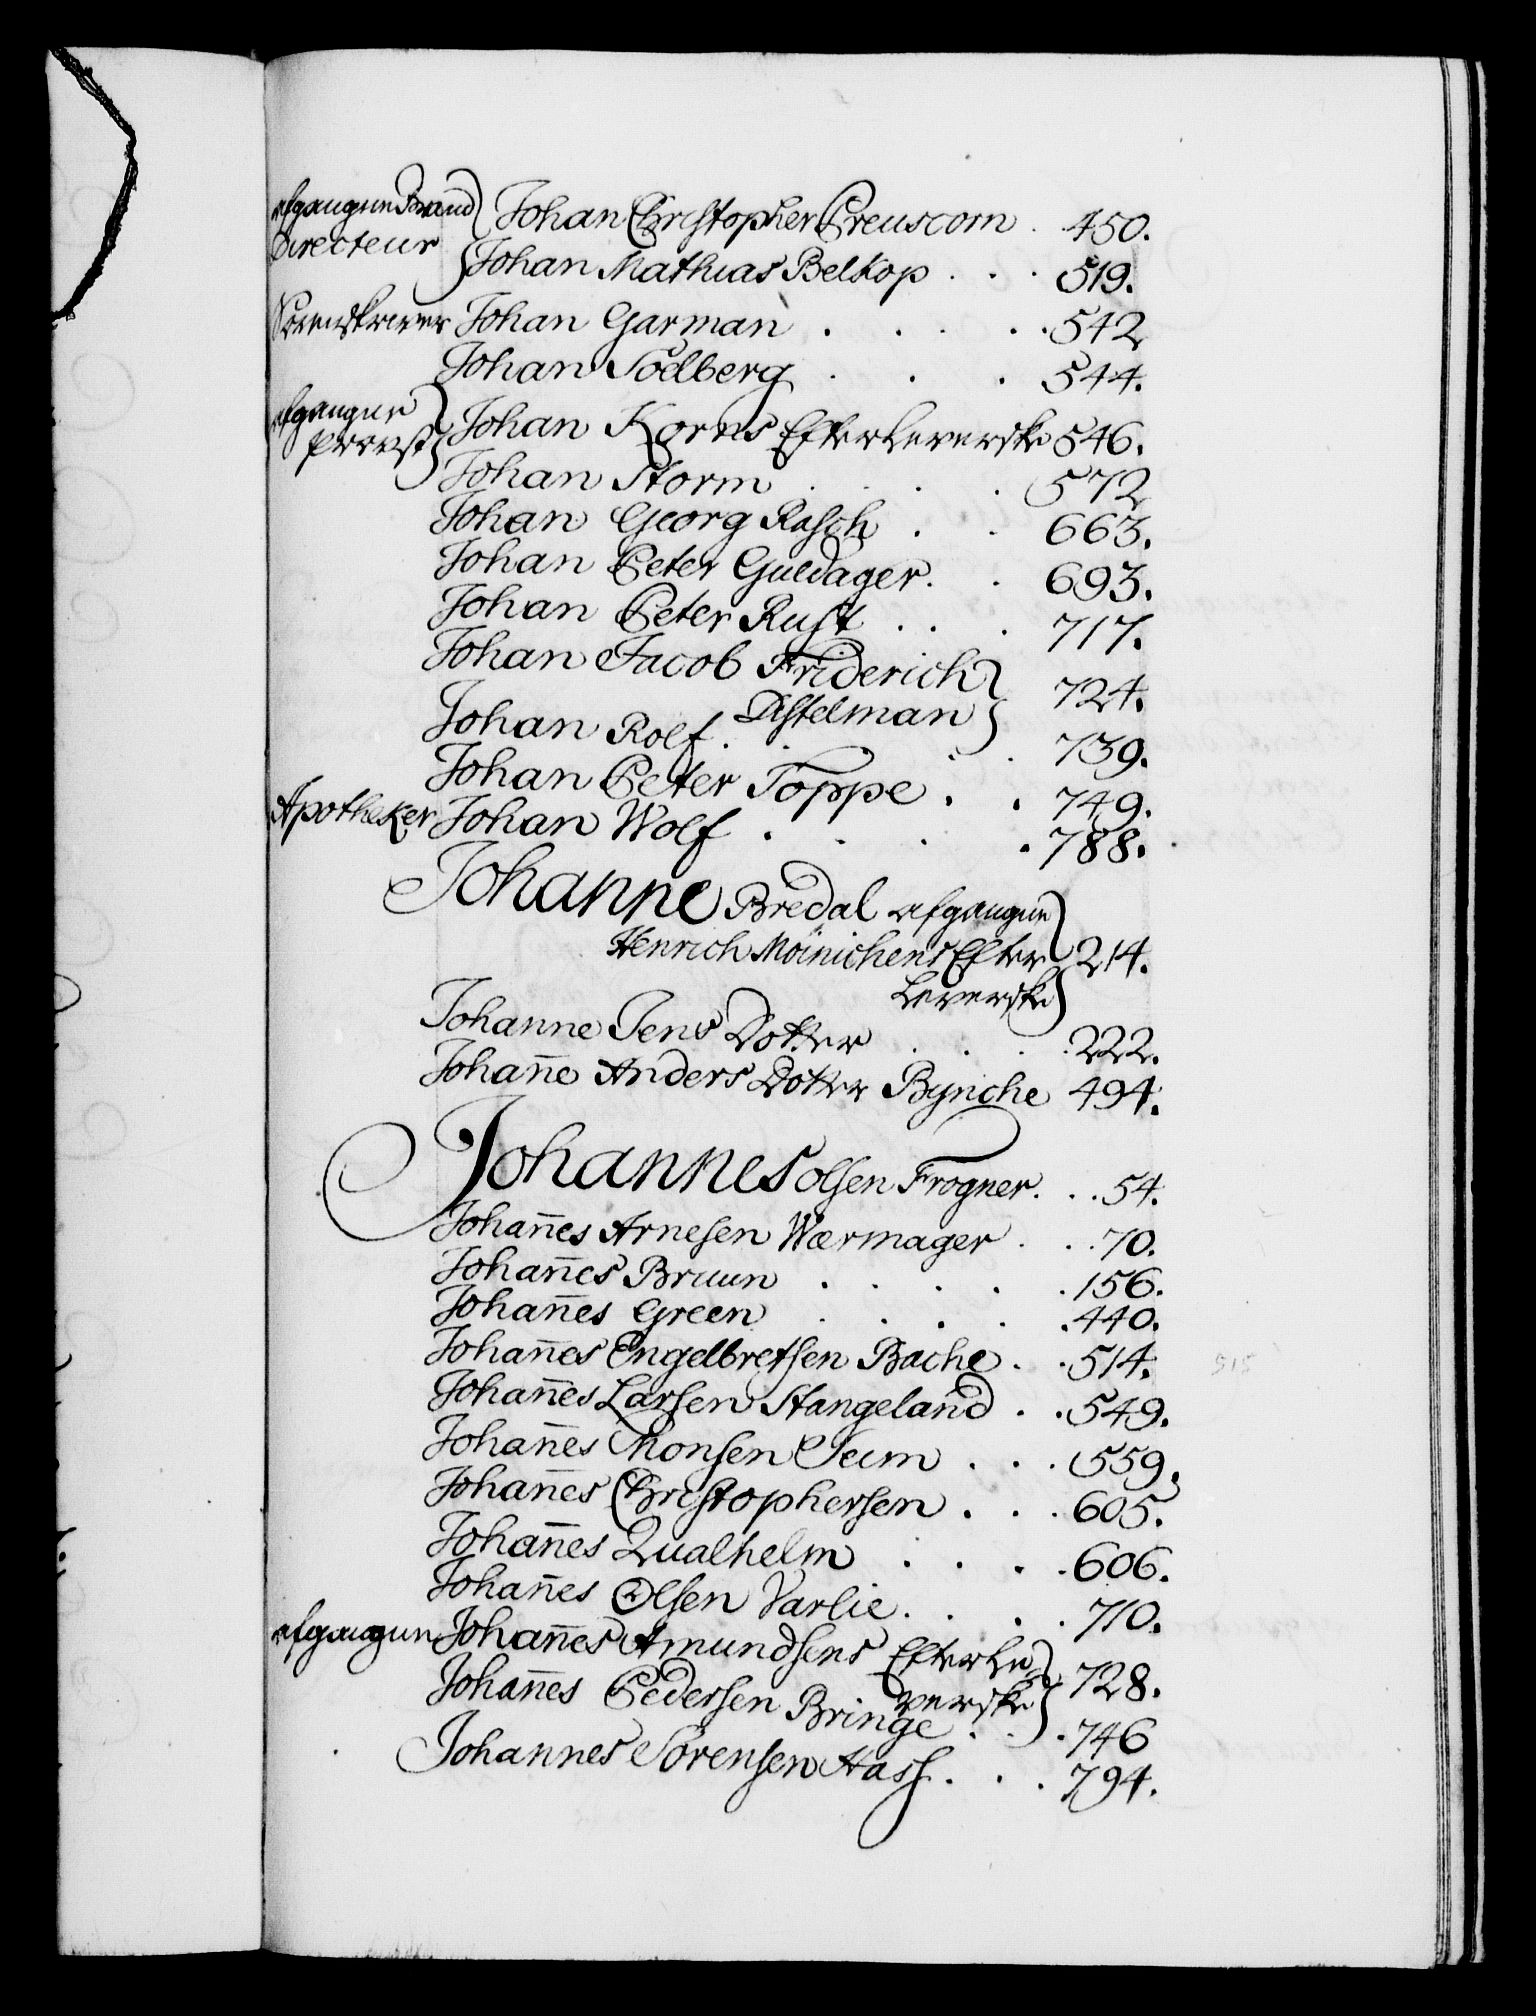 afgangne Brand Johan Christopher Preuscorn . 450.
Directeur
Johan Mathias Belkop . . . 519.
Sorenskriver Johan Garman . . . . 542
Johan Södberg . . . 544.
afgangne Johan Korns Efterleverske 546.
Provst
Johan Storm . . . . 572
Johan Georg Rasch . . 663.
Johan Peter Guldager . . 693.
Johan Peter Rust . . . 717.
Johan Jacob Friderich
Distelman 724.
Johan Rolf . . . . 739.
Johan Peter Toppe . . 749.
Apotheker Johan Wolf . . . . 788.
Johanne Bredal afgangne
Henrich Möinichens Efter 214.
Leverske
Johanne Jens Dotter . . . 222.
Johan̄e Anders Dotter Bynche 494.
Johannes Olsen Frogner . . . 54.
Johan̄es Arnesen Wærmager . . . 70.
Johan̄es Bruun . . . . . 156.
Johan̄es Green . . . . . 440.
Johan̄es Engelbretsen Bache . . 514. 515
Johan̄es Larsen Stangeland . . 549.
Johan̄es Monsen Seim . . . 559.
Johan̄es Christophersen . . . 605.
Johan̄es Qualhelm . . . . 606.
Johan̄es Olsen Varlie . . . . 710.
afgangne Johan̄es Amundsens Efterle=
verske 728.
Johan̄es Pedersen Bringe . . . 746
Johannes Sörensen Hass . . . 794.